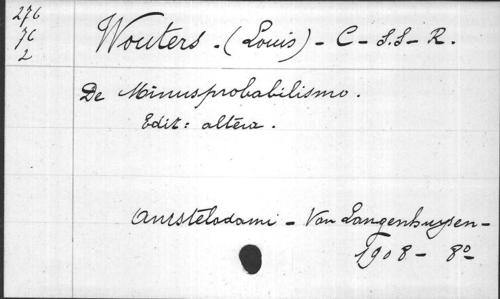 276
76
2
Wouters - (Louis) - C - S.S - R.
De Minusprobabilismo.
Edit: altera.
Amstelodami - Van Langenhuysen -
1908 - 8º